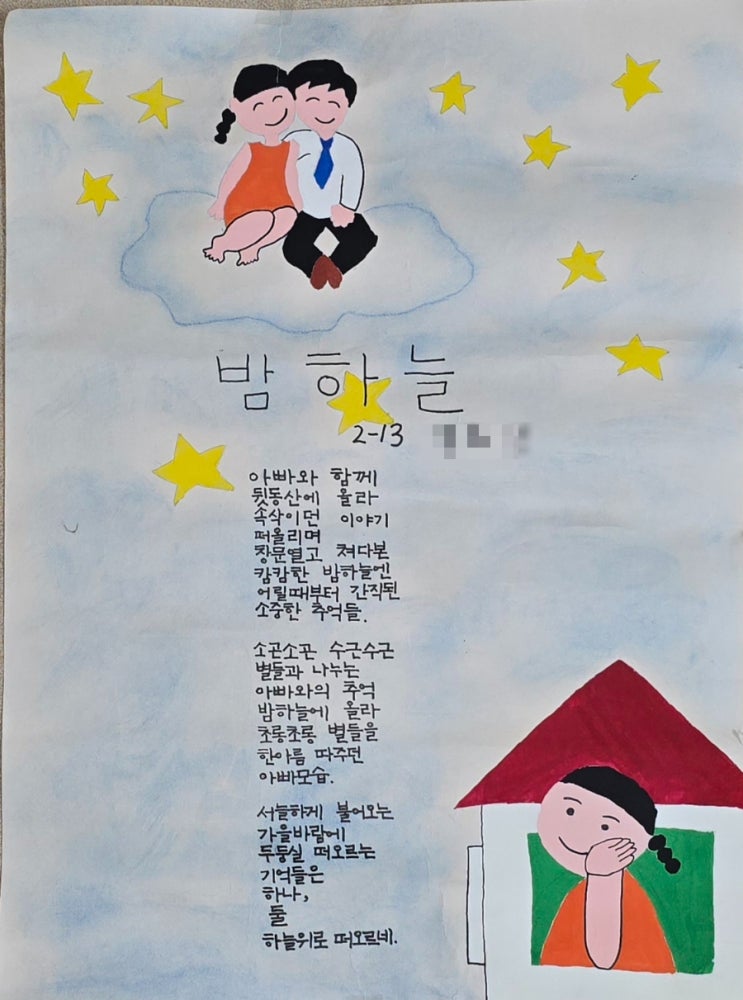 밤 하늘
2-13
아빠와 함께
뒷동산에 올라
속삭이던 이야기
떠올리며
창문열고 쳐다본
캄캄한 밤하늘엔
어릴때부터 간직된
소중한 추억들.
소곤소곤 수근수근
별들과 나누는
아빠와의 추억
밤하늘에 올라
초롱초롱 별들을
한아름 따주던
아빠모습.
서늘하게 불어오는
가을바람에
두둥실 떠오르는
기억들은
하나,
둘
하늘위로 떠오르네.